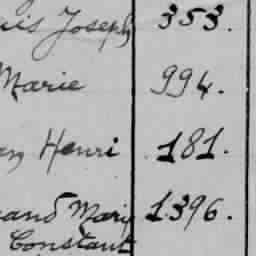 Joseph 353.
Marie 994.
Henri 181.
Mary 1396.
Constant